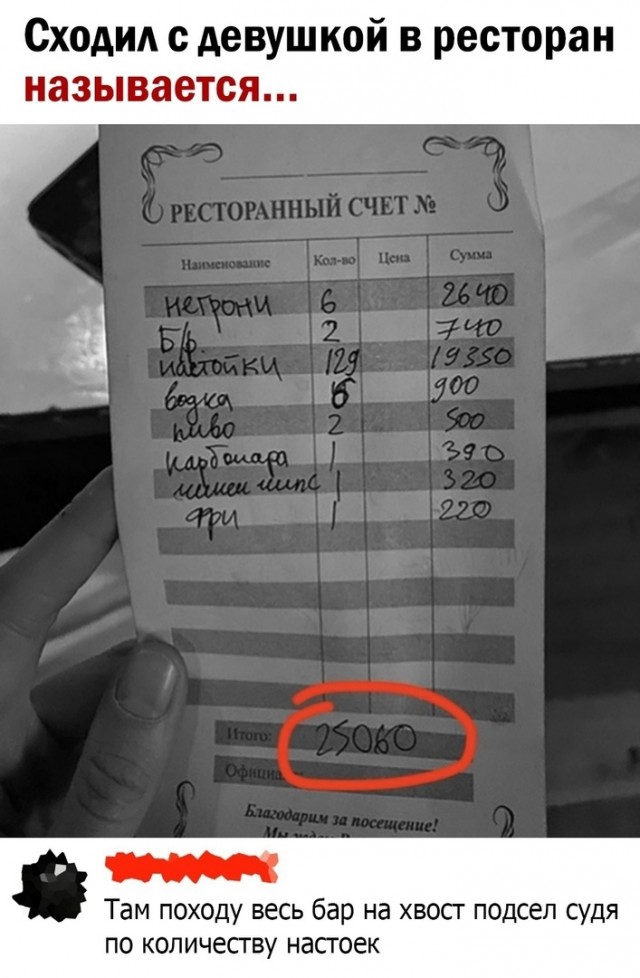 Сходил с девушкой в ресторан
называется...
РЕСТОРАННЫЙ СЧЕТ №
Наименование Кол-во Цена Сумма
негрони 6 2640
Б/ф 2 740
настойки 129 19350
водка 6 900
пиво 2 500
карбонара 1 390
чипс 1 320
фри 1 220
Итого: 25060
Официа
Благодарим за посещение!
Там походу весь бар на хвост подсел судя
по количеству настоек